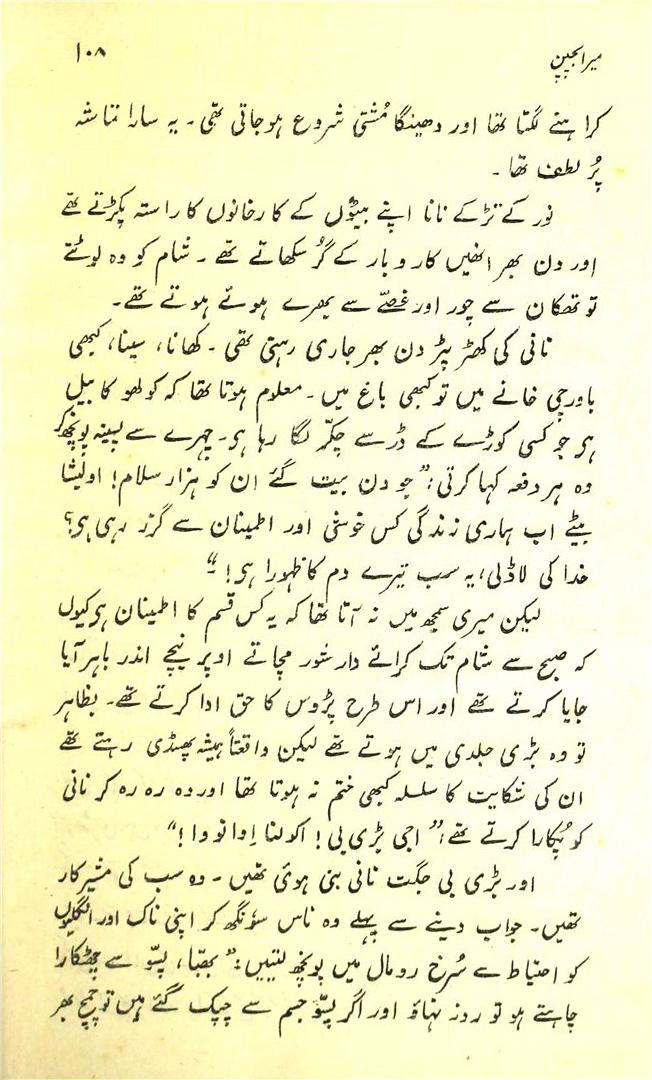 میرا بچپن ۱۰۸
کراہنے لگتا تھا اور دھینگا مُشتی شروع ہوجاتی تھی۔ یہ سارا تماشہ
پُر لطف تھا۔
نور کے تڑکے نانا اپنے بیٹوں کے کارخانوں کا راستہ پکڑتے تھے
اور دن بھر انھیں کاروبار کے گُر سکھاتے تھے۔ شام کو وہ لوٹتے
تو تھکان سے چور اور غصّے سے بھرے ہوئے ہوتے تھے۔
نانی کی کھڑ پڑ دن بھر جاری رہتی تھی۔ کھانا، سینا، کبھی
باورچی خانے میں تو کبھی باغ میں۔ معلوم ہوتا تھا کہ کولھو کا بیل
ہی جو کسی کوڑے کے ڈر سے چکّر لگا رہا ہی۔ چہرے سے پسینہ پونچھ کر
وہ ہر دفعہ کہا کرتی: ”جو دن بیت گئے ان کو ہزار سلام! اولیشا
بیٹے اب ہماری زندگی کس خوشی اور اطمینان سے گزر رہی ہی؟
خدا کی لاڈلی، یہ سب تیرے دم کا ظہورا ہی!“
لیکن میری سمجھ میں نہ آتا تھا کہ یہ کس قسم کا اطمینان ہی کیوں
کہ صبح سے شام تک کرائے دار شور مچاتے اوپر نیچے اندر باہر آیا
جایا کرتے تھے اور اس طرح پڑوس کا حق ادا کرتے تھے۔ بظاہر
تو وہ بڑی جلدی میں ہوتے تھے لیکن واقعتاً ہمیشہ پھسڈی رہتے تھے
ان کی شکایت کا سلسلہ کبھی ختم نہ ہوتا تھا اور وہ رہ رہ کر نانی
کو پُکارا کرتے تھے: ”اجی بڑی بی! اکولنا اِوانووا!“
اور بڑی بی جگت نانی بنی ہوئی تھیں۔ وہ سب کی مشیرکار
تھیں۔ جواب دینے سے پہلے وہ ناس سؤنگھ کر اپنی ناک اور انگلیوں
کو احتیاط سے سُرخ رومال میں پونچھ لیتیں: ”بھیّا، پسّو سے چھٹکارا
چاہتے ہو تو روز نہاؤ اور اگر پسّو جسم سے چپک گئے ہیں تو چمچ بھر